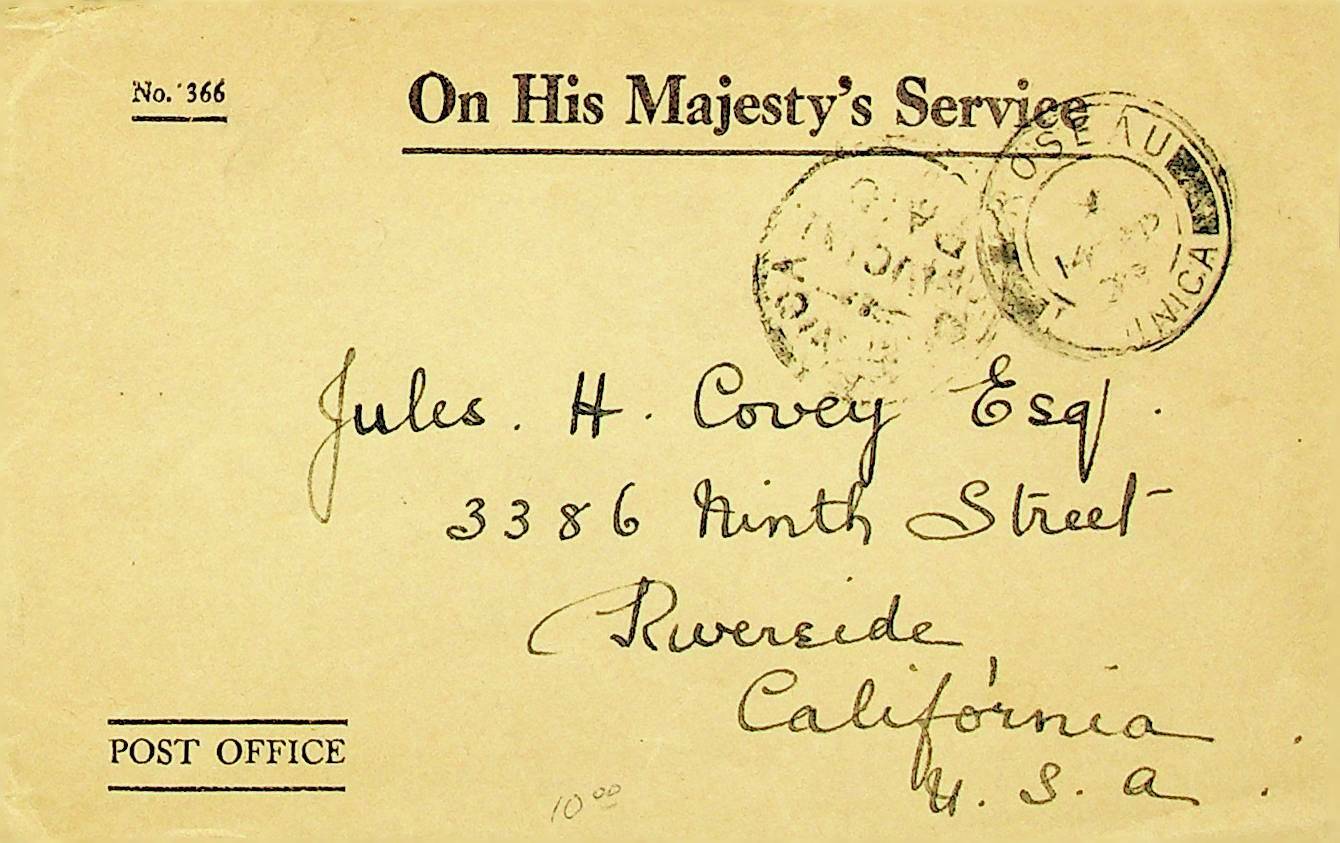 No. 366
On His Majesty's Service
ROSEAU
Jules. H. Covey Esq.
3386 Ninth Street
Riverside,
California.
U. S. A.
POST OFFICE
10 00